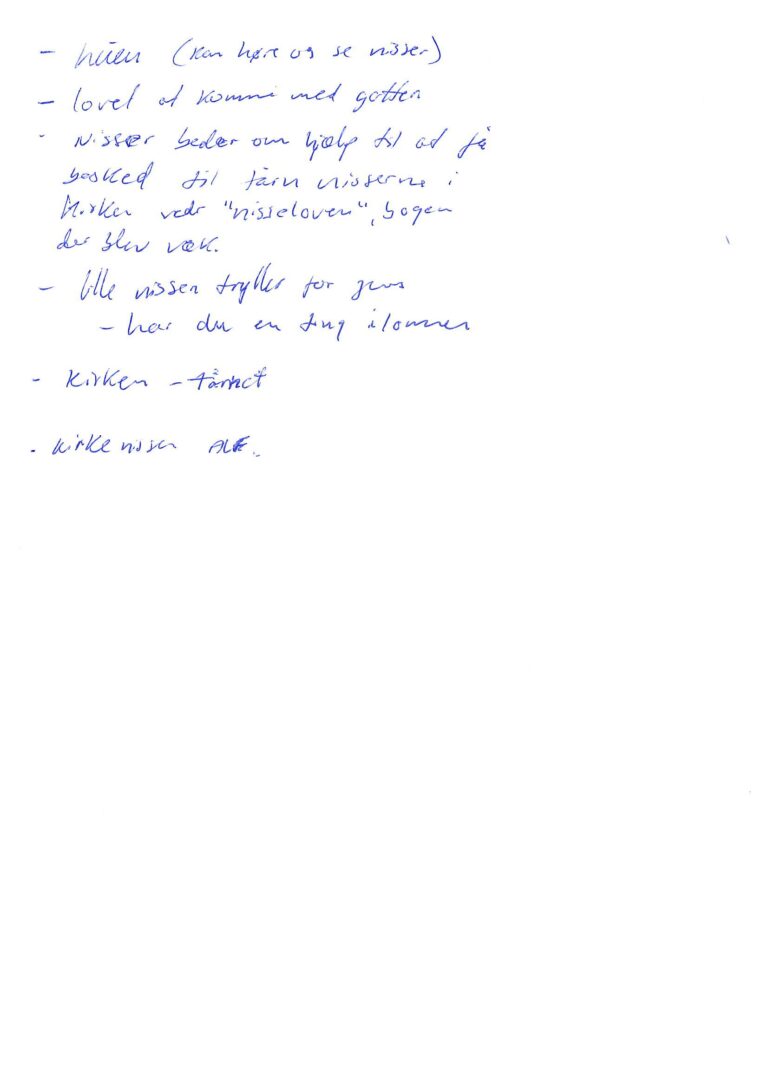 - huen (kan høre og se nisser)
- lovet at komme med gotten
- Nisser beder om hjælp til at få
besked til tårn nisserne i
kirken vedr "nisseloven", bogen
der blev væk.
- lille nissen tryller for
- har du en ting i lommen
- Kirken - tårnet
- Kirke nissen ALF.